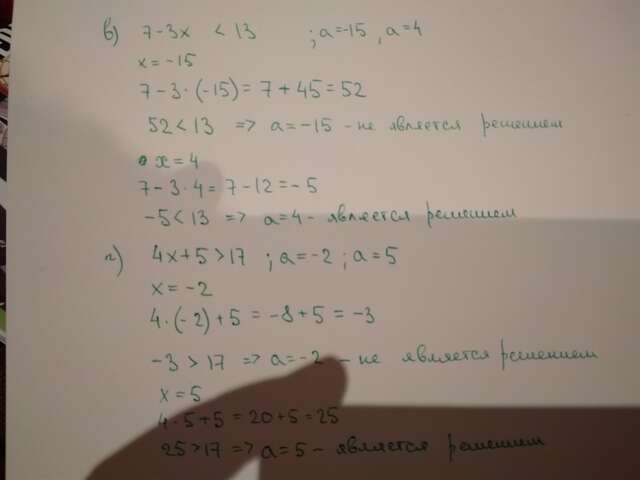 в) 7-3x < 13 ; a=-15 , a=4
x=-15
7-3·(-15)=7+45=52
52<13 => a=-15 - не является решением
x=4
7-3·4=7-12=-5
-5<13 => a=4- является решением
г) 4x+5>17 ; a=-2 ; a=5
x=-2
4·(-2)+5=-8+5=-3
-3>17 => a=-2 - не является решением
x=5
4·5+5=20+5=25
25>17 => a=5- является решением